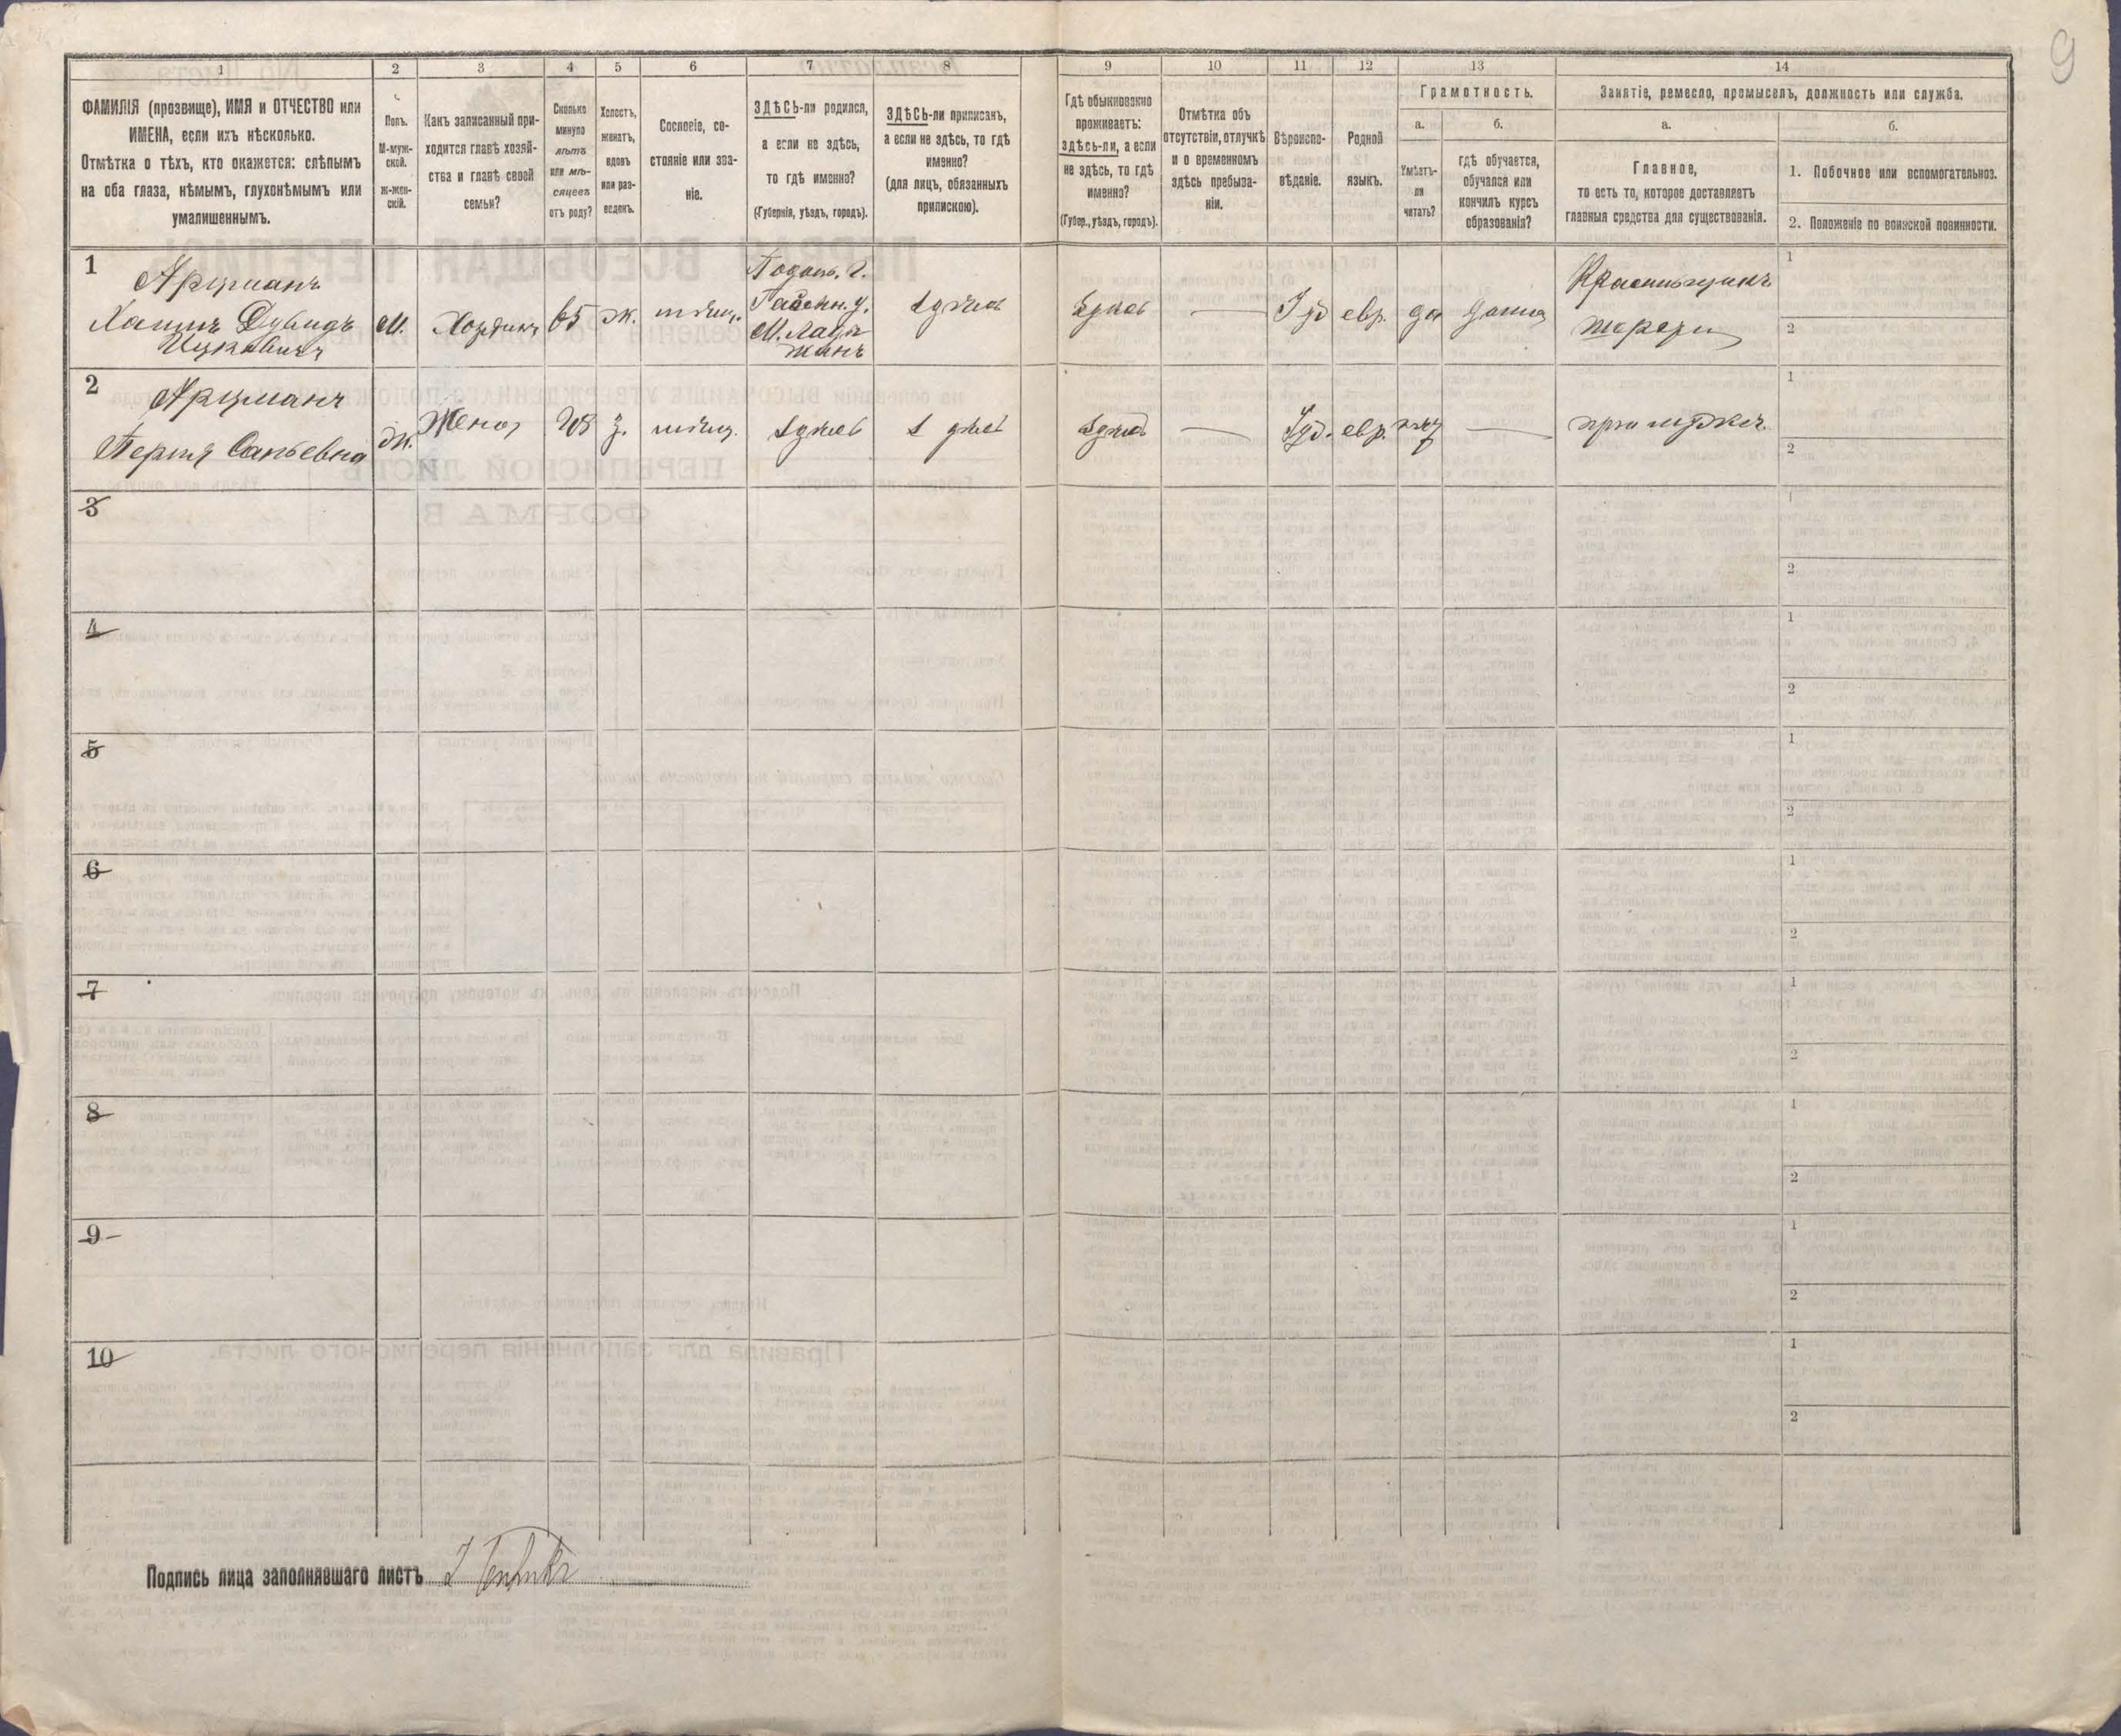 9
1
2
3
4
5
6
7
8
9
10
11
12
13
14
ФАМИЛІЯ (прозвище), ИМЯ и ОТЧЕСТВО или
ИМЕНА, если ихъ нѣсколько.
Отмѣтка о тѣхъ, кто окажется: слѣпымъ
на оба глаза, нѣмымъ, глухонѣмымъ или
умалишеннымъ.
Полъ.
М-муж-
ской.
Ж-жен-
скій.
Какъ записанный при-
ходится главѣ хозяй-
ства и главѣ своей
семьи?
Сколько
минуло
лѣтъ
или мѣ-
сяцевъ
отъ роду?
Холостъ,
женатъ,
вдовъ
или раз-
веденъ.
Сословіе, со-
стояніе или зва-
ніе.
ЗДѢСЬ-ли родился,
а если не здѣсь,
то гдѣ именно?
(Губернія, уѣздъ, городъ).
ЗДѢСЬ-ли приписанъ,
а если не здѣсь, то гдѣ
именно?
(для лицъ, обязанныхъ
припискою).
Гдѣ обыкновенно
проживаетъ:
здѣсь-ли, а если
не здѣсь, то гдѣ
именно?
(Губер., уѣздъ, городъ).
Отмѣтка объ
отсутствіи, отлучкѣ
и о временномъ
здѣсь пребыва-
ніи.
Вѣроиспо-
вѣданіе.
Родной
языкъ.
Грамотность.
а.
Умѣетъ-
ли
читать?
б.
гдѣ обучается,
обучался или
кончилъ курсъ
образованія?
Занятіе, ремесло, промыселъ, должность или служба.
а.
Главное,
то есть то, которое доставляетъ
главныя средства для существованія.
б.
1. Побочное или вспомогательное.
2. Положеніе по воинской повинности.
1
Арцманъ
Хаимъ Дувидъ
Ицковичъ
М.
Хозяинъ
65
ж.
мѣщ.
Подол. г.
М.
здѣсь
здѣсь
—
Іуд
евр.
да
дома
Красильщикъ
1
2
2
Арцманъ
Перля
Ж.
Жена
з.
мѣщ.
здѣсь
здѣсь
здѣсь
—
Іуд.
евр.
нѣт
—
при мужѣ
1
2
3
1
2
4
1
2
5
1
2
6
1
2
7
1
2
8
1
2
9
1
2
10
1
2
Подпись лица заполнявшаго листъ